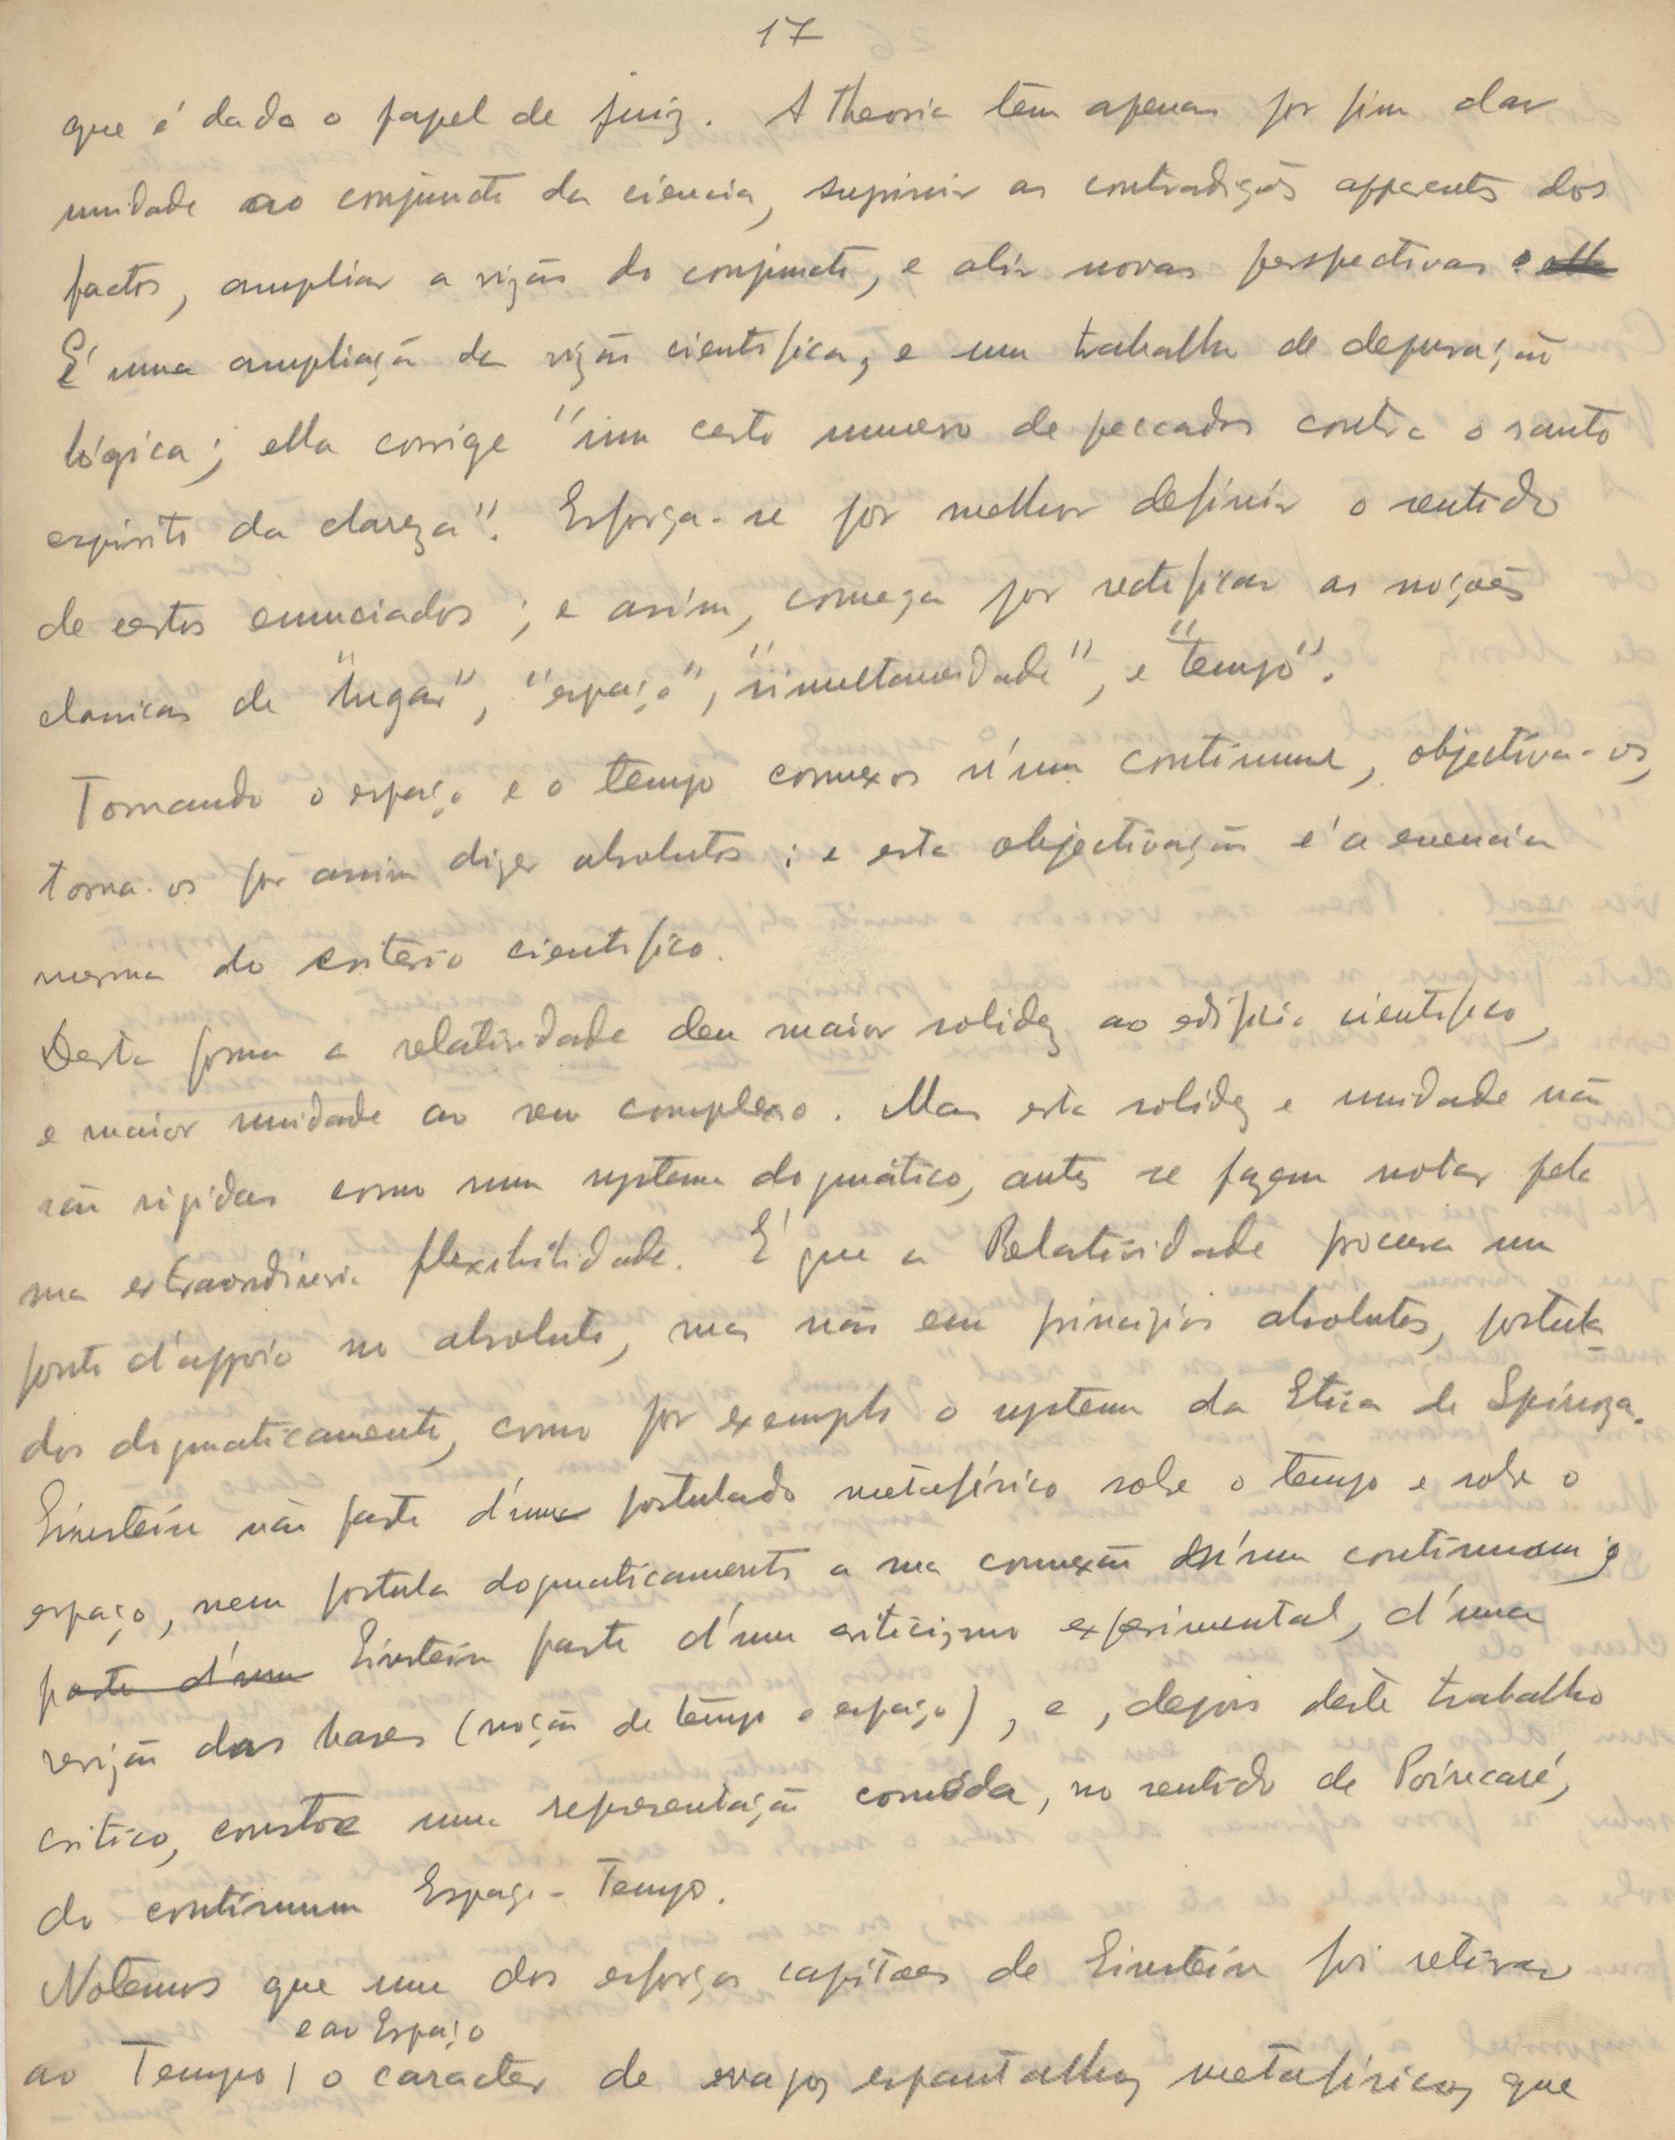 17
que é dado o papel de juiz. A theoria tem apenas por fim dar
unidade ao conjuncto da ciencia, suprimir as contradições apparentes dos
factos, ampliar a vizão do conjuncto, e abrir novas perspectivas.
É uma ampliação da vizão cientifica, e um trabalho de depuração
lógica; ella corrige "um certo numero de peccados contra o santo
espirito da clareza". Esforça-se por melhor definir o sentido
de certos enunciados; e assim, começa por rectificar as noções
classicas de "lugar", "espaço", "simultaneidade", e "tempo".
Tornando o espaço e o tempo connexos n'um continuum, objectiva-os,
torna-os por assim dizer absolutos; e esta objectivação é a essencia
mesma do criterio cientifico.
Desta forma a relatividade deu maior solidez ao edificio cientifico,
e maior unidade ao seu complexo. Mas esta solidez e unidade não
são rigidas como num systema dogmático, antes se fazem notar pela
sua extraordinaria flexibilidade. É que a Relatividade procura um
ponto d'appoio no absoluto, mas não em principios absolutos, postula-
dos dogmaticamente, como por exemplo o systema da Etica de Spinoza.
Einstein não parte d'um postulado metafisico sobre o tempo e sobre o
espaço, nem postula dogmaticamente a sua connexão n'um continuum;
parte d'um Einstein parte d'um criticismo experimental, d'uma
revizão das bases (noção de tempo e espaço), e, depois deste trabalho
critico, constroe uma representação comóda, no sentido de Poincaré,
do continuum Espaço-Tempo.
Notemos que um dos esforços capitaes de Einstein foi retirar
e ao Espaço
ao Tempo | o caracter de vagos espantalhos metafisicos que